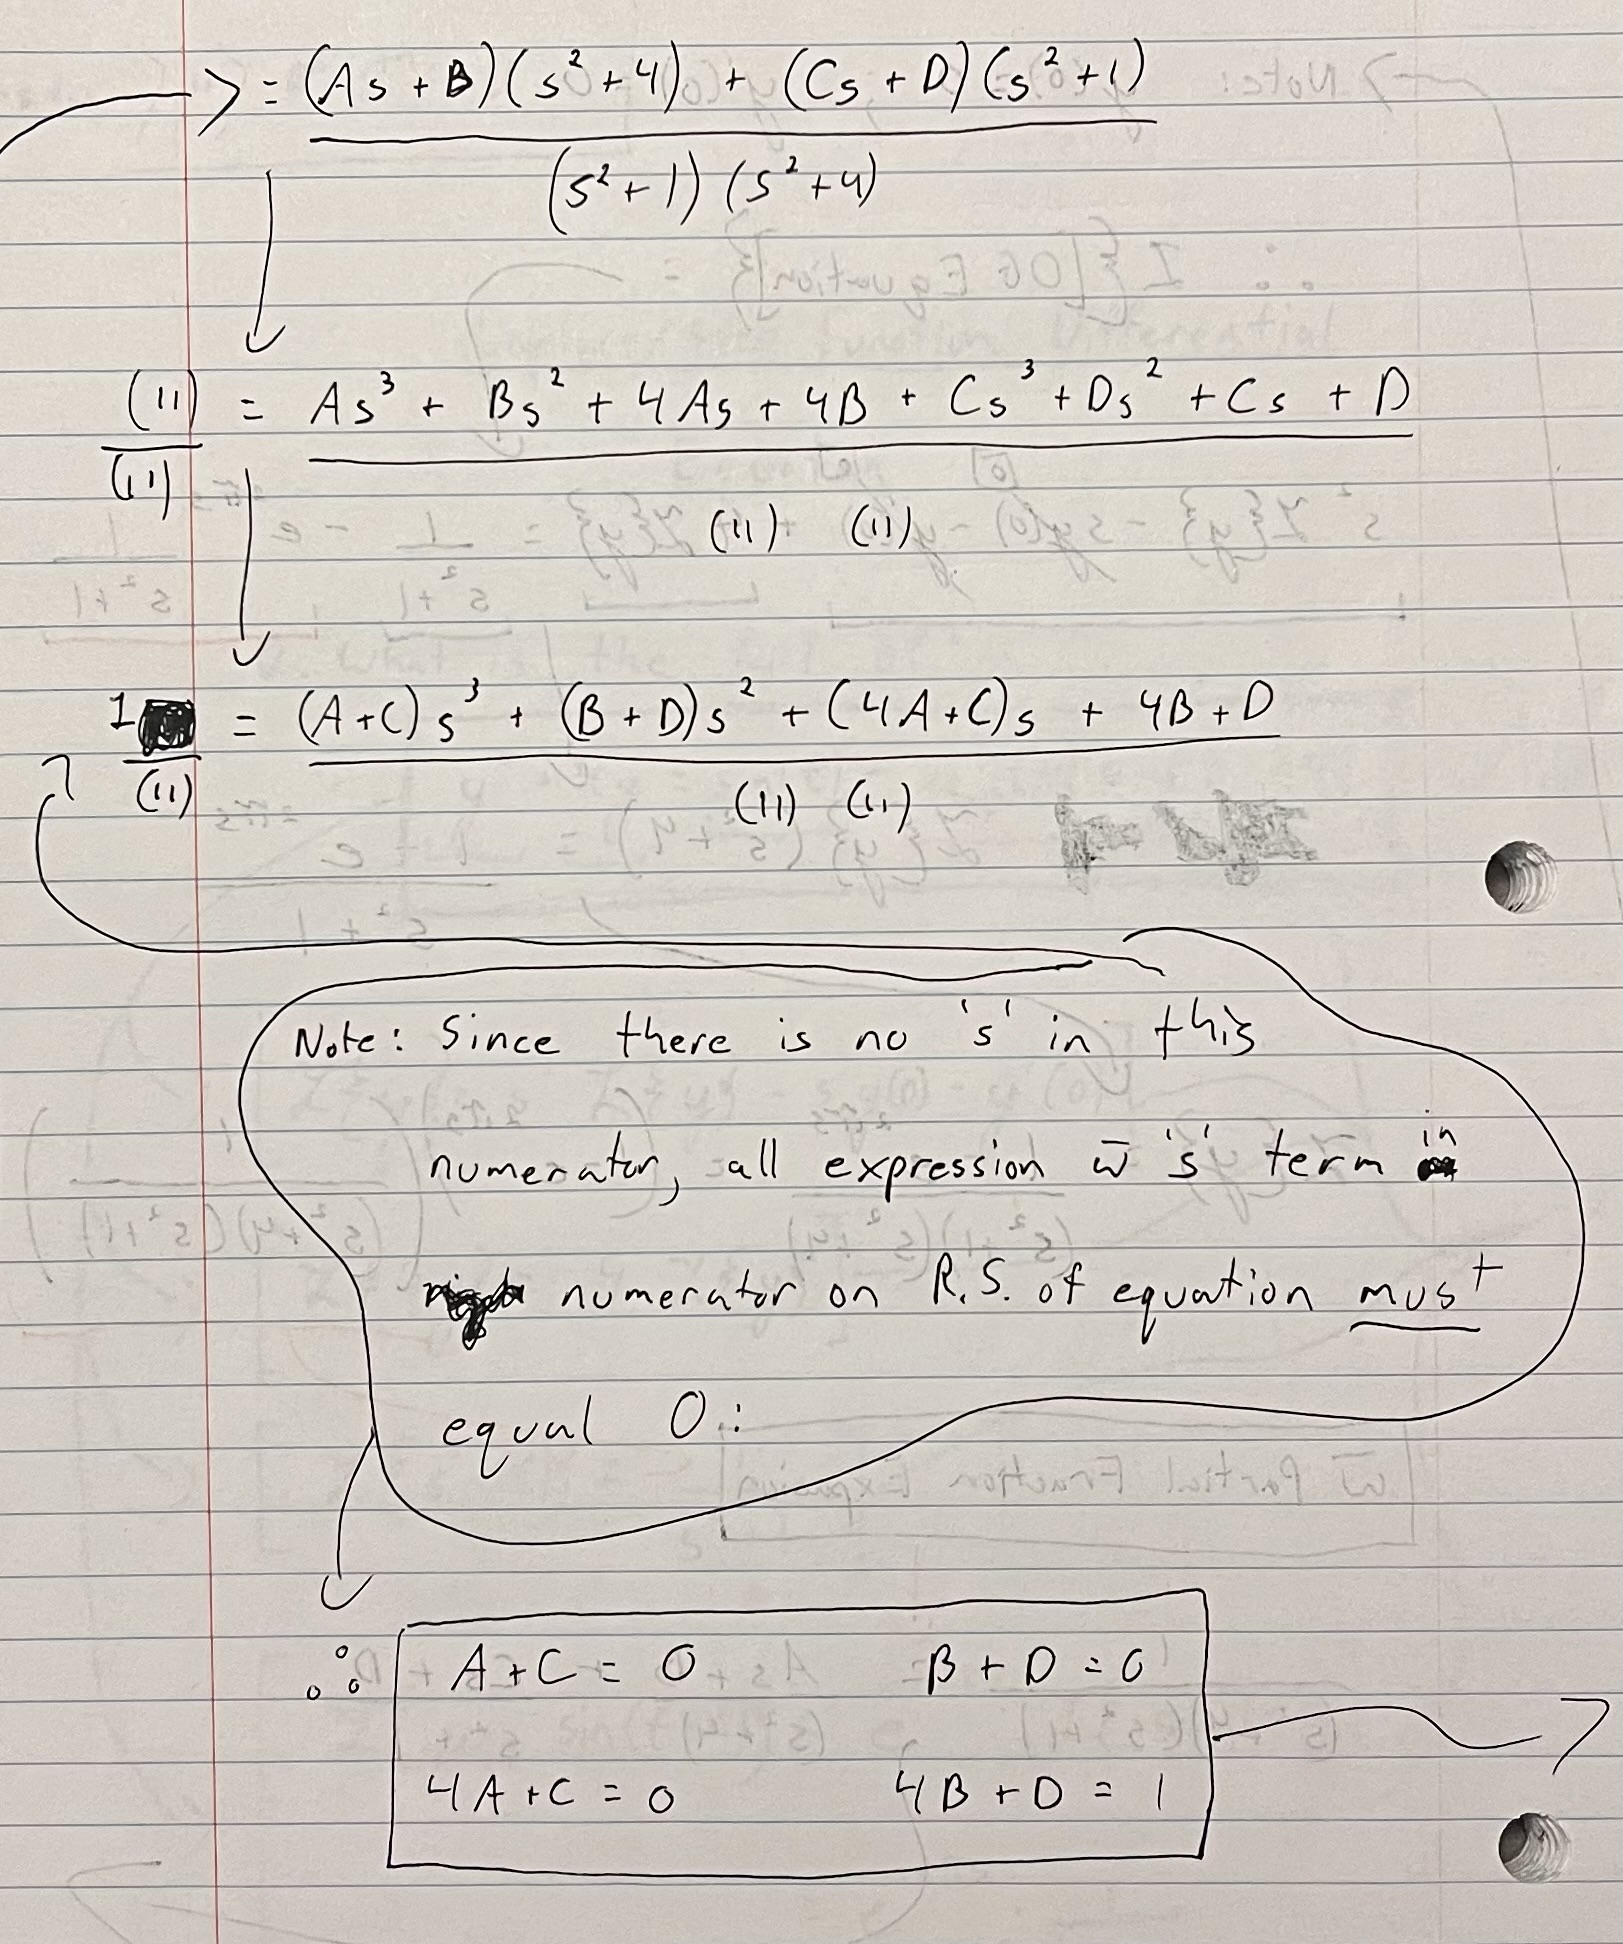 = (As + B)(s² + 4) + (Cs + D)(s² + 1)
(s² + 1) (s² + 4)
(11) = As³ + Bs² + 4As + 4B + Cs³ + Ds² + Cs + D
(11) (11) (11)
1 = (A+C)s³ + (B+D)s² + (4A+C)s + 4B+D
(11) (11) (11)
Note: Since there is no 's' in this
numerator, all expression w̅ 's' term in
numerator on R.S. of equation must
equal 0:
∴ A+C = 0 B+D = 0
4A+C = 0 4B+D = 1